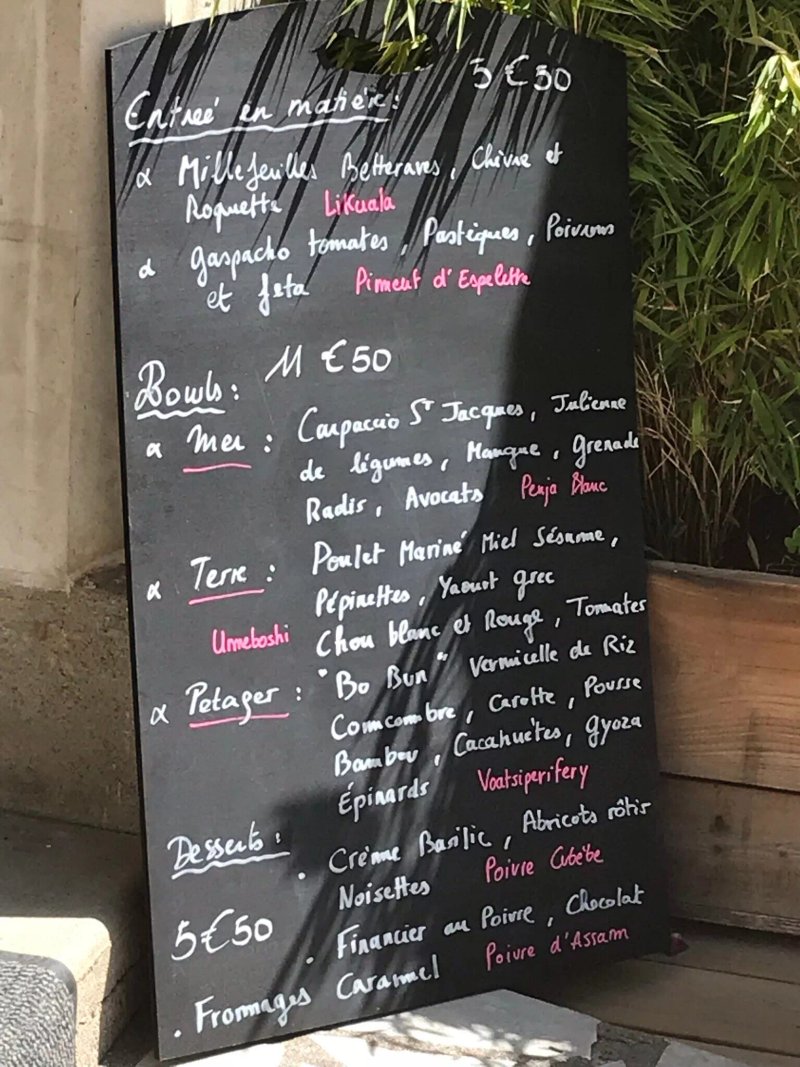 Entreé en matière : 5 €50
α Millefeuilles Betteraves, Chèvre et
Roquette Likuala
α gaspacho tomates, Pastèques, Poivrons
et feta Piment d'Espelette
Bowls : 11 €50
α Mer : Carpaccio ST Jacques, Julienne
de légumes, Mangue, Grenade
Radis, Avocats Penja Blanc
α Terre : Poulet Mariné Miel Sésame,
Pépinettes, Yaourt grec
Umeboshi Chou blanc et Rouge, Tomates
α Potager : "Bo Bun" Vermicelle de Riz
Comcombre, Carotte, Pousse
Bambou, Cacahuètes, gyoza
Épinards Voatsiperifery
Desserts :
. Crème Basilic, Abricots rôtis
Noisettes Poivre Cubèbe
5€50
. Financier au Poivre, Chocolat
Caramel Poivre d'Assam
. Fromages